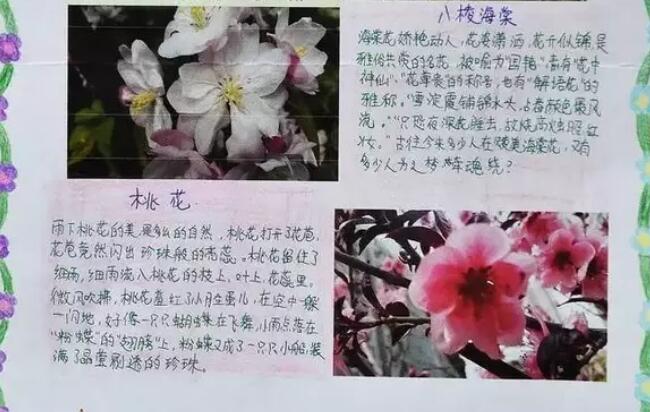 八棱海棠
海棠花娇艳动人,花姿潇洒,花开似锦是
雅俗共赏的名花,被喻为"国艳",素有"花中
神仙"、"花尊贵的称号,也有"解语花"的
雅称。"雪淀霞铺锦水头,占春颜色最风
流。""只恐夜深花睡去,故烧高烛照红
妆。"古往今来多少人在赞美海棠花,又有
多少人为之梦牵魂绕?
桃花
雨下桃花的美是多么的自然,桃花打开了花苞,
花苞竟然闪出珍珠般的
。桃花留住了
细雨,细雨流入桃花的枝上,叶上,花蕊里。
微风吹拂,桃花羞红了小脸蛋儿,在空中一躲
一闪地,好像一只只蝴蝶在飞舞,小雨点落在
"粉蝶"的"翅膀"上,粉蝶又成了一只只小船,装
满了晶莹剔透的珍珠。